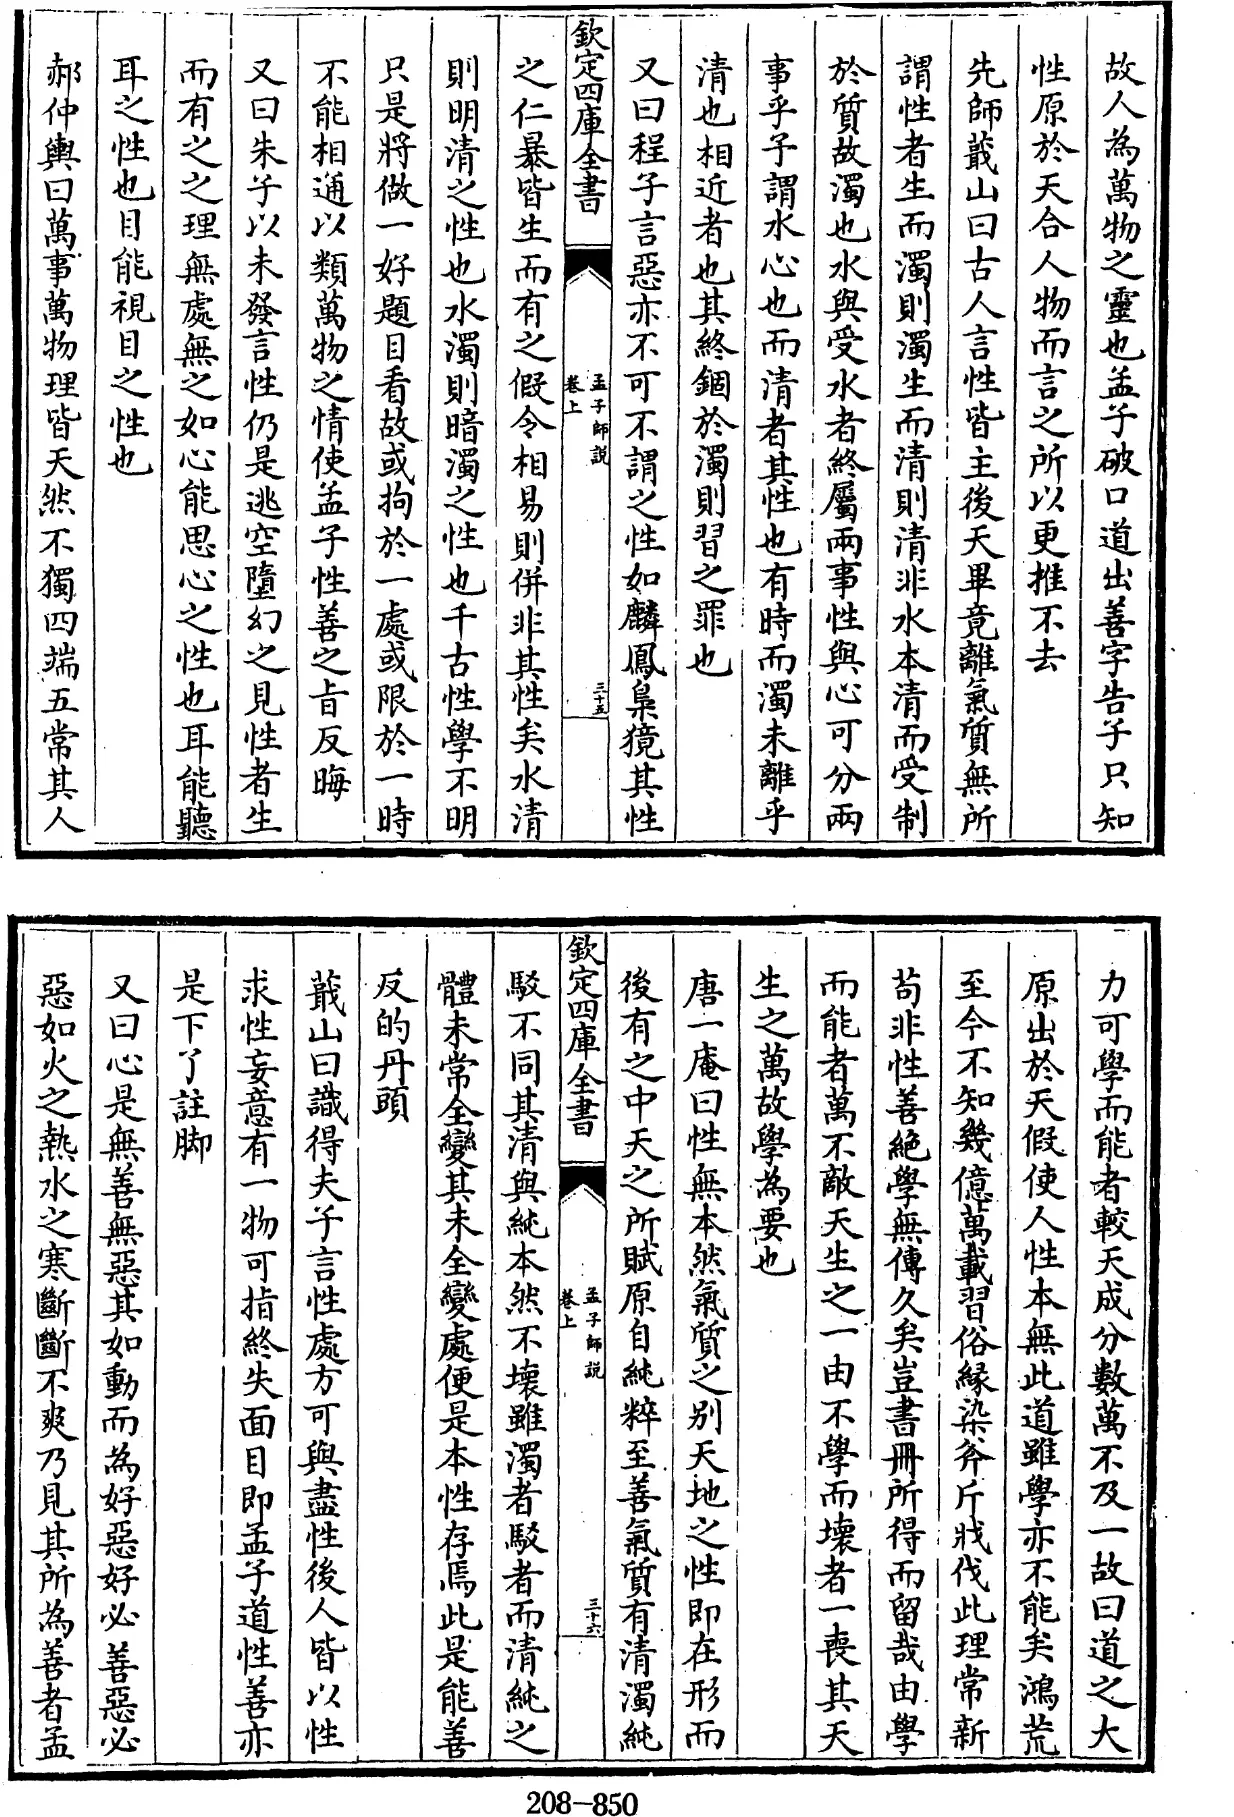 故人為萬物之靈也孟子破口道出善字告子只知
性原於天合人物而言之所以更推不去
先師蕺山曰古人言性皆主後天畢竟離氣質無所
謂性者生而濁則濁生而清則清非水本清而受制
於質故濁也水與受水者終屬兩事性與心可分兩
事乎予謂水心也而清者其性也有時而濁未離乎
清也相近者也其終錮於濁則習之罪也
又曰程子言惡亦不可不謂之性如麟鳳梟獍其性
欽定四庫全書
孟子師説
卷上
三十五
之仁暴皆生而有之假令相易則併非其性矣水清
則明清之性也水濁則暗濁之性也千古性學不明
只是將做一好題目看故或拘於一處或限於一時
不能相通以類萬物之情使孟子性善之㫖反晦
又曰朱子以未發言性仍是逃空墮幻之見性者生
而有之之理無處無之如心能思心之性也耳能聽
耳之性也目能視目之性也
郝仲輿曰萬事萬物理皆天然不獨四端五常其人
力可學而能者較天成分數萬不及一故曰道之大
原出於天假使人性本無此道雖學亦不能矣鴻荒
至今不知幾億萬載習俗縁染斧斤戕伐此理常新
苟非性善絶學無傳久矣豈書冊所得而留哉由學
而能者萬不敵天生之一由不學而壞者一喪其天
生之萬故學為要也
唐一庵曰性無本然氣質之别天地之性即在形而
後有之中天之所賦原自純粹至善氣質有清濁純
欽定四庫全書
孟子師説
卷上
三十六
駁不同其清與純本然不壞雖濁者駁者而清純之
體未常全變其未全變處便是本性存焉此是能善
反的丹頭
蕺山曰識得夫子言性處方可與盡性後人皆以性
求性妄意有一物可指終失面目即孟子道性善亦
是下了註脚
又曰心是無善無惡其如動而為好惡好必善惡必
惡如火之熱水之寒斷斷不爽乃見其所為善者孟
208-850